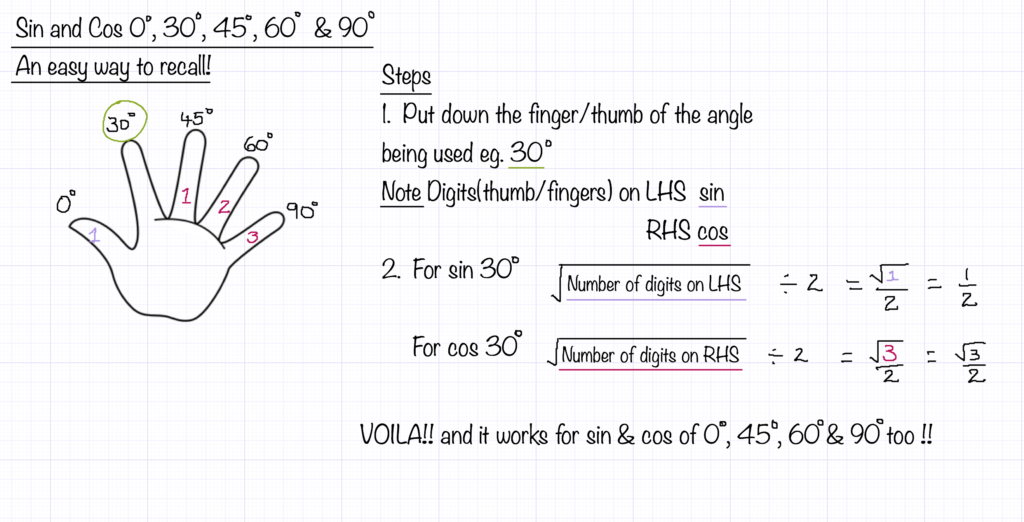 Sin and Cos 0°, 30°, 45°, 60° & 90°
An easy way to recall!
0°
30°
45°
60°
90°
1
1
2
3
Steps
1. Put down the finger/thumb of the angle
being used eg. 30°
Note Digits(thumb/fingers) on LHS sin
RHS cos
2. For sin 30° √Number of digits on LHS ÷ 2 = √1/2 = 1/2
For cos 30° √Number of digits on RHS ÷ 2 = √3/2 = √3/2
VOILA!! and it works for sin & cos of 0°, 45°, 60° & 90° too !!